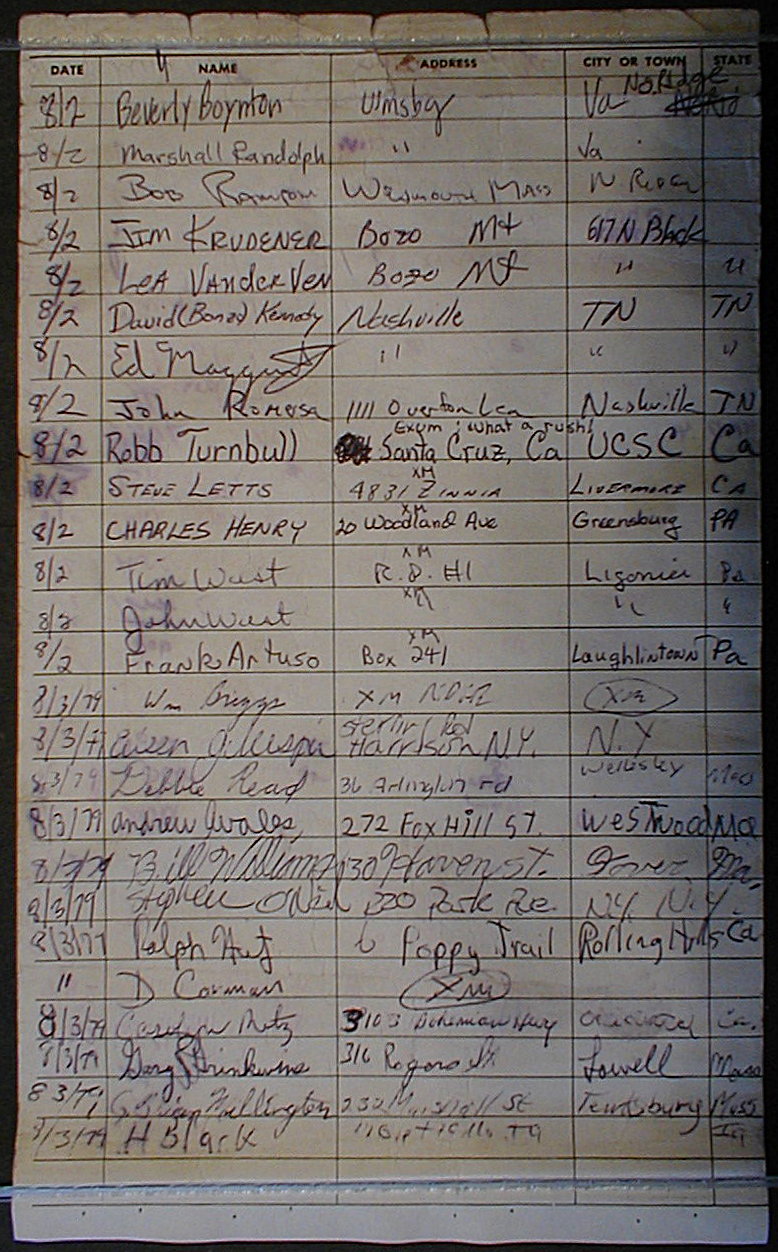 DATE NAME ADDRESS CITY OR TOWN STATE
No. Ridge
8/2 Beverly Boynton Wmsbg Va
8/2 Marshall Randolph " Va
8/2 Bob Mass N.
8/2 JIM KRUDENER Bozo Mt 617 N Black
8/2 LEA VANDERVEN Bozo Mt " "
8/2 David (Bonzo) Kennedy Nashville TN TN
8/2 Ed " " "
8/2 John Romersa 1111 Overton Lea Nashville TN
Exum; what a rush!
8/2 Robb Turnbull Santa Cruz, Ca UCSC Ca
XM
8/2 STEVE LETTS 4831 ZINNIA LIVERMORE CA
XM
8/2 CHARLES HENRY 20 Woodland Ave Greensburg PA
XM
8/2 Tim West R.D. #1 Ligonier Pa
XM
8/2 John West " " "
XM
8/2 Frank Artuso Box 241 Laughlintown Pa
8/3/79 Wm Briggs XM XM
8/3/79 Gillespie Harrison N.Y. N.Y
8/3/79 Debbie Read 36 Arlington rd Wellesley Mass
8/3/79 andrew Wales, 272 Fox Hill ST. Westwood Ma
8/3/79 Bill Williams 30 Haven St. Dover Ma.
8/3/79 Stephen O'Neil 820 Park Ave. N.Y. N.Y.
8/3/79 Ralph 6 Poppy Trail Rolling Hills Ca
" D Corman XM
8/3/79 Carolyn 3103 Bohemian Hwy Occidental Ca.
8/3/79 Gary Drinkwine 316 Rogers St Lowell Mass
8/3/79 Brian Wellington 230 Marshall St Tewksbury Mass
8/3/79 H Black Ia